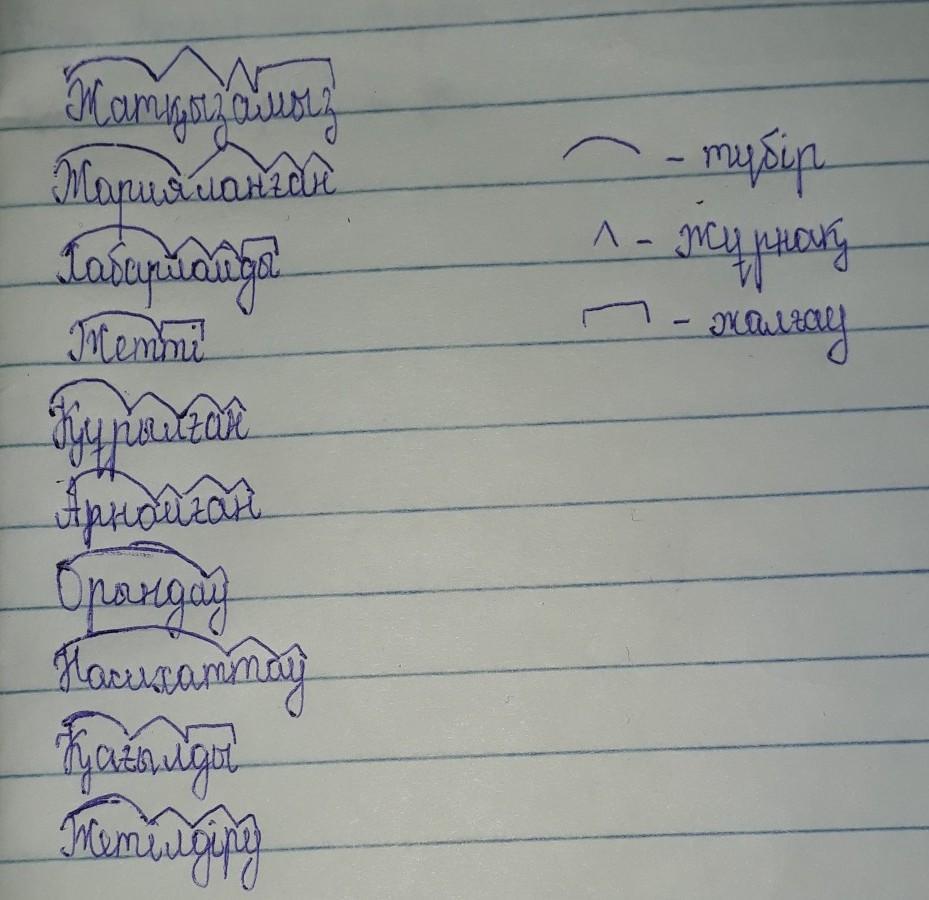 Жатқызамыз
Жарияланған
Хабарлайды
Жетті
Құрылған
Арналған
Орындау
Насихаттау
Қағылды
Жетілдіру
⌒ - түбір
^ - жұрнақ
- жалғау